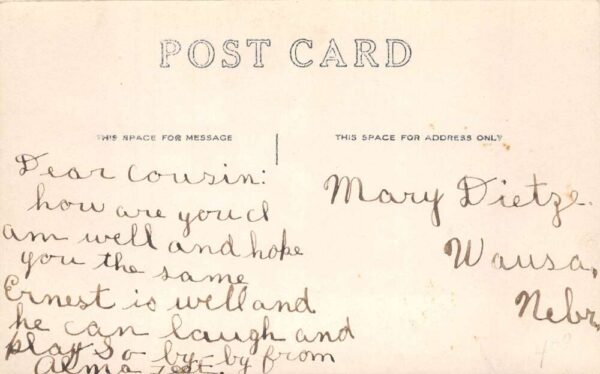 POST CARD
THIS SPACE FOR MESSAGE
THIS SPACE FOR ADDRESS ONLY
Dear cousin:
how are you I
am well and hope
you the same
Ernest is well and
he can laugh and
play so by-by from
Alma
Mary Dietze.
Wausa,
Nebr.